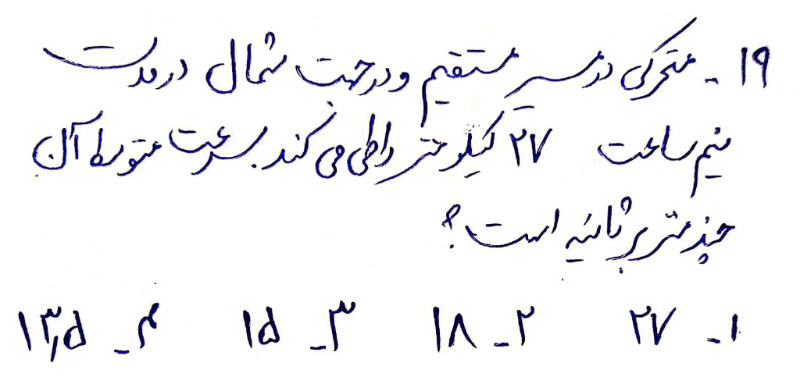 ۱۹ - متحرکی در مسیر مستقیم و در جهت شمال در مدت
نیم ساعت ۲۷ کیلومتر را طی می کند. سرعت متوسط آن
چند متر بر ثانیه است؟
۱ - ۲۷ ۲ - ۱۸ ۳ - ۱۵ ۴ - ۱۳٫۵